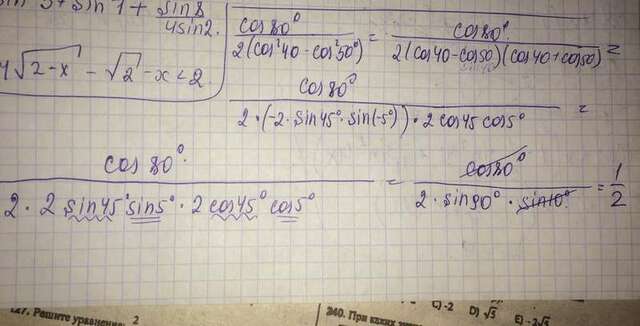 sin 3 + sin 1 + sin 8 / 4 sin 2.
cos 80° / 2(cos²40 - cos²50°) = cos 80° / 2(cos40 - cos50)(cos40 + cos50) =
√2-x - √2 - x < 2
cos 80° / 2·(-2·sin45°·sin(-5°))·2cos45 cos5° =
cos 80° / 2·2 sin45° sin5°·2 cos45° cos5° = cos80° / 2·sin90°·sin10° = 1/2
Решите уравнение
2
240. При каких
C) -2 D) √5 E) -2√5